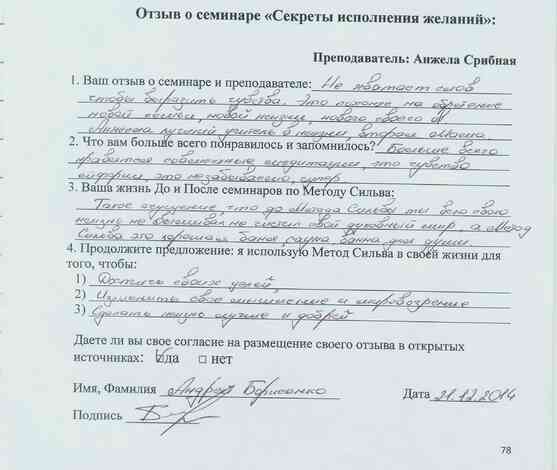 Отзыв о семинаре «Секреты исполнения желаний»:
Преподаватель: Анжела Срибная
1. Ваш отзыв о семинаре и преподавателе: Не хватает слов
чтобы выразить чувства. Это похоже на обретение
новой жизни, нового своего Я
Анжела лучший учитель в жизни, вторая Мама.
2. Что вам больше всего понравилось и запомнилось? Больше всего
нравится совместные медитации, это чувство
эйфории, это незабываемо, супер
3. Ваша жизнь До и После семинаров по Методу Сильва:
Такое ощущение, что до Метода Сильва ты всю свою
жизнь не чистил свой духовный мир, а Метод
Сильва это хорошая баня, сауна, ванна для души.
4. Продолжите предложение: я использую Метод Сильва в своей жизни для
того, чтобы:
1) Достичь своих целей,
2) Изменить свое мышление и мировозрение
3) Сделать жизнь лучше и добрей
Даете ли вы свое согласие на размещение своего отзыва в открытых
источниках: да нет
Имя, Фамилия Андрей Борисенко Дата 21.12.2014
Подпись
78